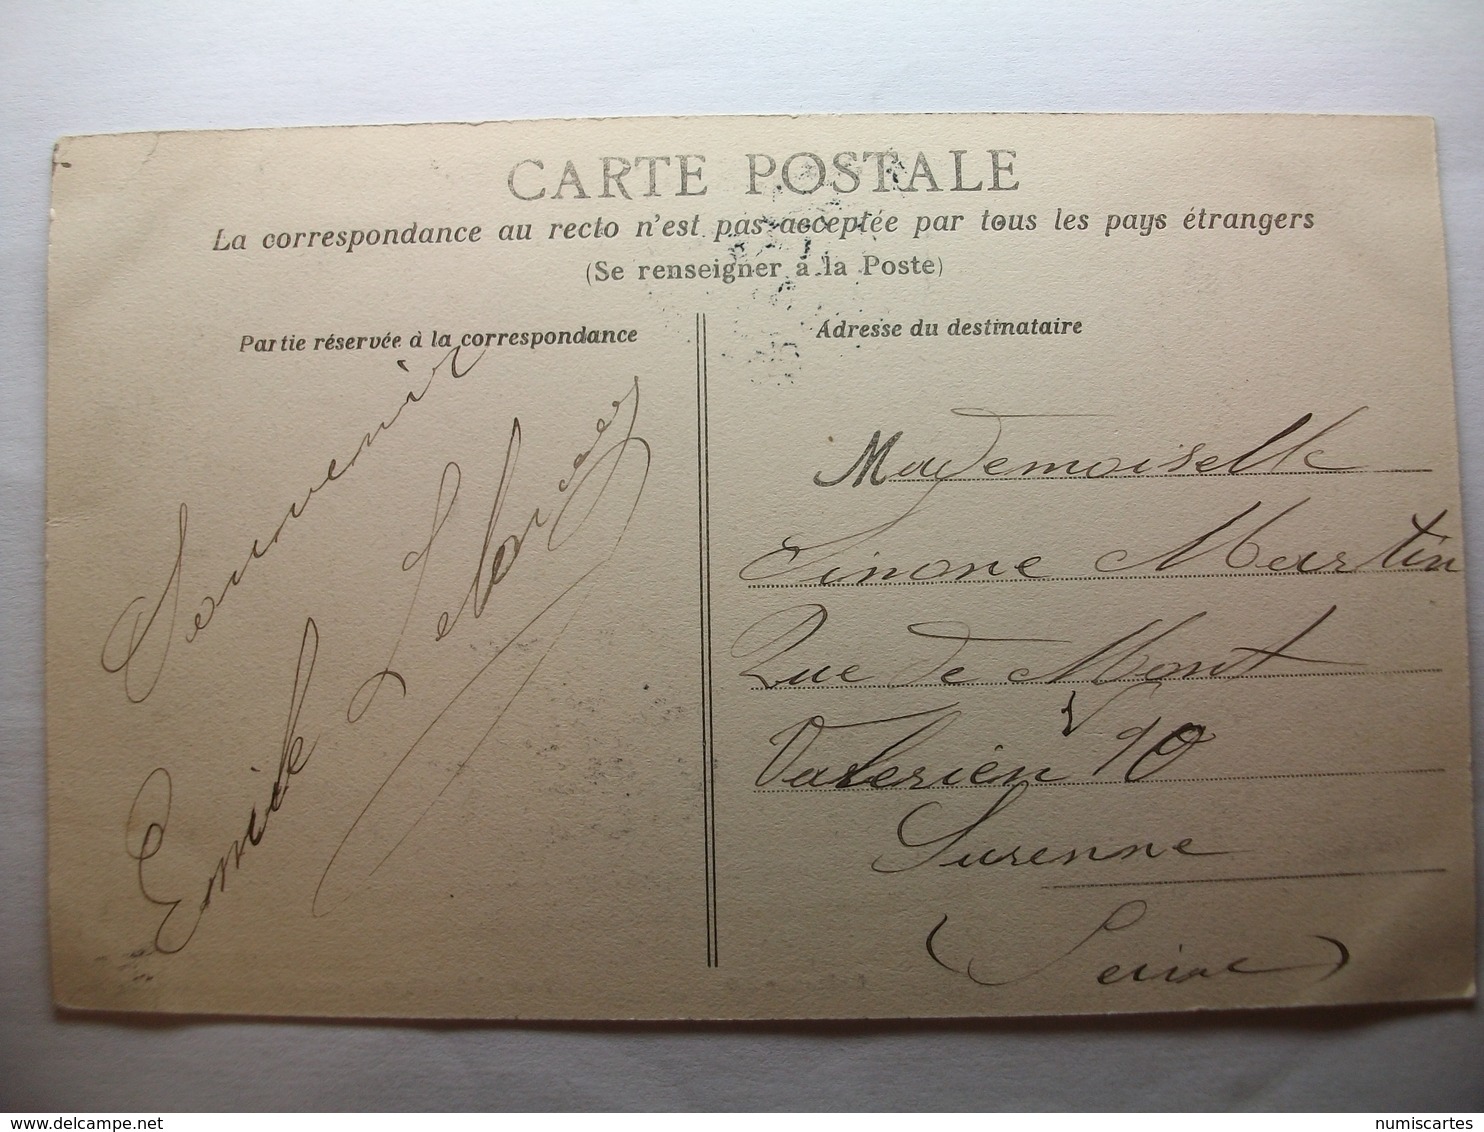 CARTE POSTALE
La correspondance au recto n'est pas acceptée par tous les pays étrangers
(Se renseigner à la Poste)
Partie réservée à la correspondance
Souvenir
Emile
Adresse du destinataire
Mademoiselle
Simone Martin
Rue de Mont
Valerien 10
Surenne
(Seine)
numiscartes